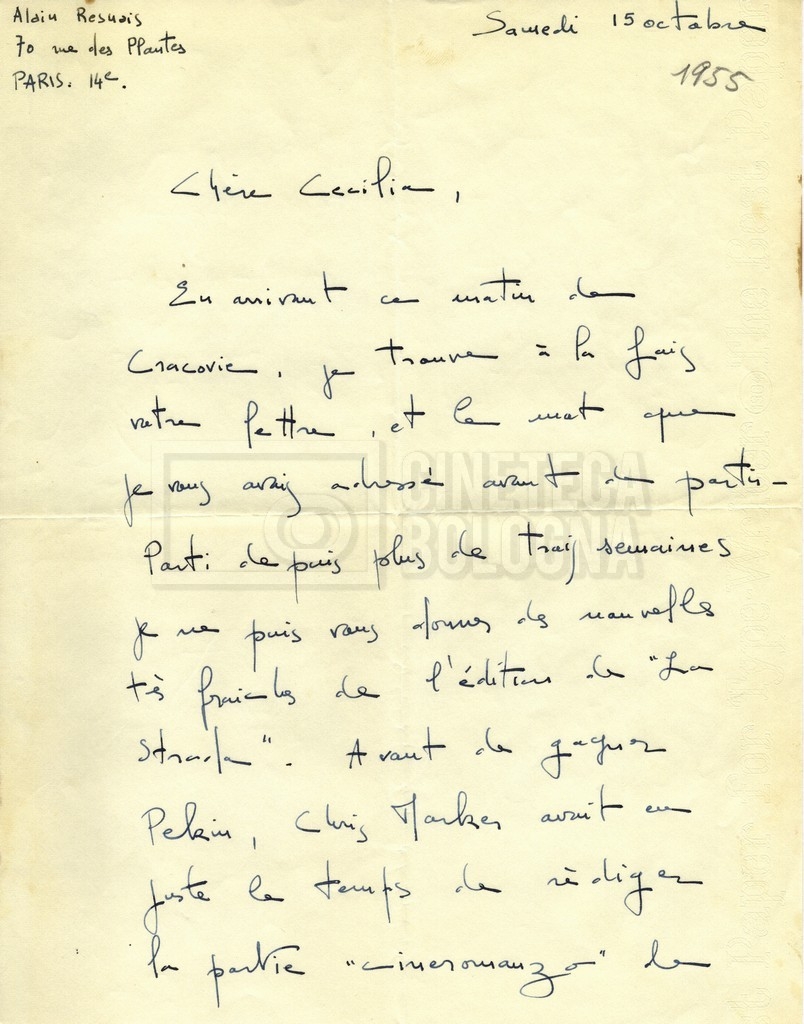 Alain Resnais
70 rue des Plantes
PARIS. 14e.
Samedi 15 octobre
1955
Chère Cecilia,
En arrivant ce matin de
Cracovie, je trouve à la fois
votre lettre, et le mot que
je vous avais adressé avant de partir –
CINETECA
BOLOGNA
Parti depuis plus de trois semaines
je ne puis vous donner des nouvelles
très fraiches de l'édition de "La
Strada". Avant de gagner
Pekin, Chris Marker avait eu
juste le temps de rédiger
la partie "cineromanzo" de